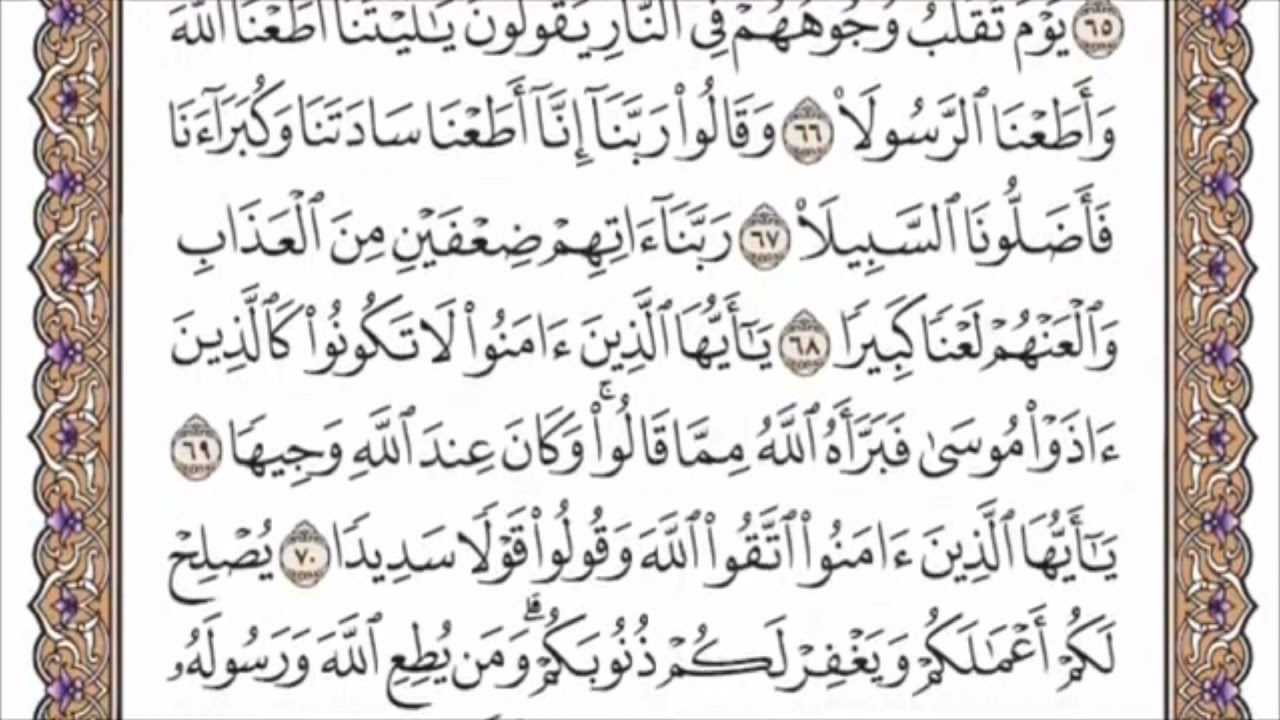 ٦٥ يَوْمَ تُقَلَّبُ وُجُوهُهُمْ فِى ٱلنَّارِ يَقُولُونَ يَٰلَيْتَنَآ أَطَعْنَا ٱللَّهَ
وَأَطَعْنَا ٱلرَّسُولَا۠ ٦٦ وَقَالُوا۟ رَبَّنَآ إِنَّآ أَطَعْنَا سَادَتَنَا وَكُبَرَآءَنَا
فَأَضَلُّونَا ٱلسَّبِيلَا۠ ٦٧ رَبَّنَآ ءَاتِهِمْ ضِعْفَيْنِ مِنَ ٱلْعَذَابِ
وَٱلْعَنْهُمْ لَعْنًا كَبِيرًا ٦٨ يَٰٓأَيُّهَا ٱلَّذِينَ ءَامَنُوا۟ لَا تَكُونُوا۟ كَٱلَّذِينَ
ءَاذَوْا۟ مُوسَىٰ فَبَرَّأَهُ ٱللَّهُ مِمَّا قَالُوا۟ۚ وَكَانَ عِندَ ٱللَّهِ وَجِيهًا ٦٩
يَٰٓأَيُّهَا ٱلَّذِينَ ءَامَنُوا۟ ٱتَّقُوا۟ ٱللَّهَ وَقُولُوا۟ قَوْلًا سَدِيدًا ٧٠ يُصْلِحْ
لَكُمْ أَعْمَٰلَكُمْ وَيَغْفِرْ لَكُمْ ذُنُوبَكُمْۗ وَمَن يُطِعِ ٱللَّهَ وَرَسُولَهُۥ